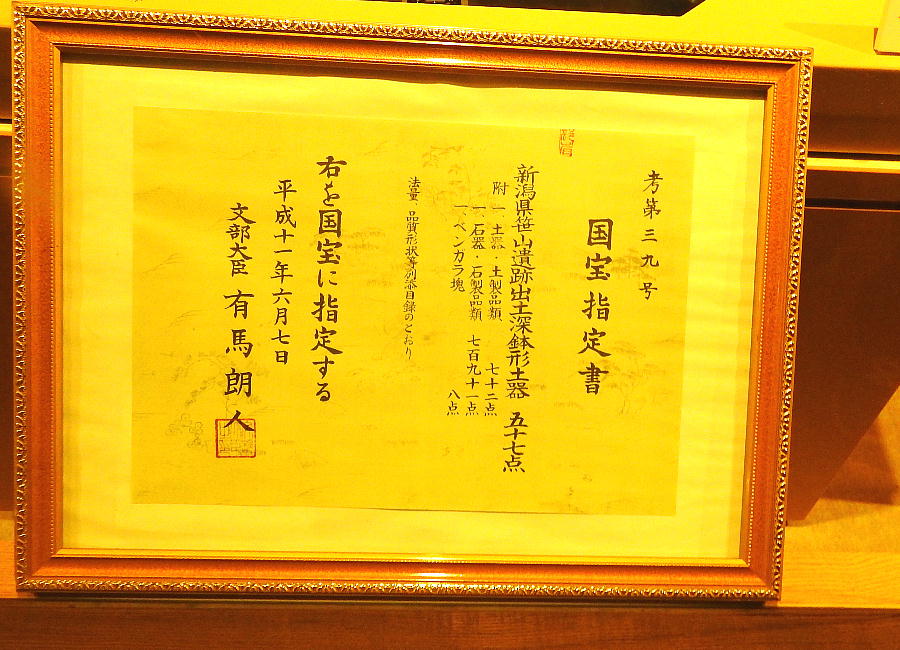 考第三九号
国宝指定書
新潟県笹山遺跡出土深鉢形土器 五十七点
附 一、土器・土製品類 七十二点
一、石器・石製品類 七百九十一点
一、ベンガラ塊 八点
法量、品質形状等別添目録のとおり
右を国宝に指定する
平成十一年六月七日
文部大臣 有馬朗人